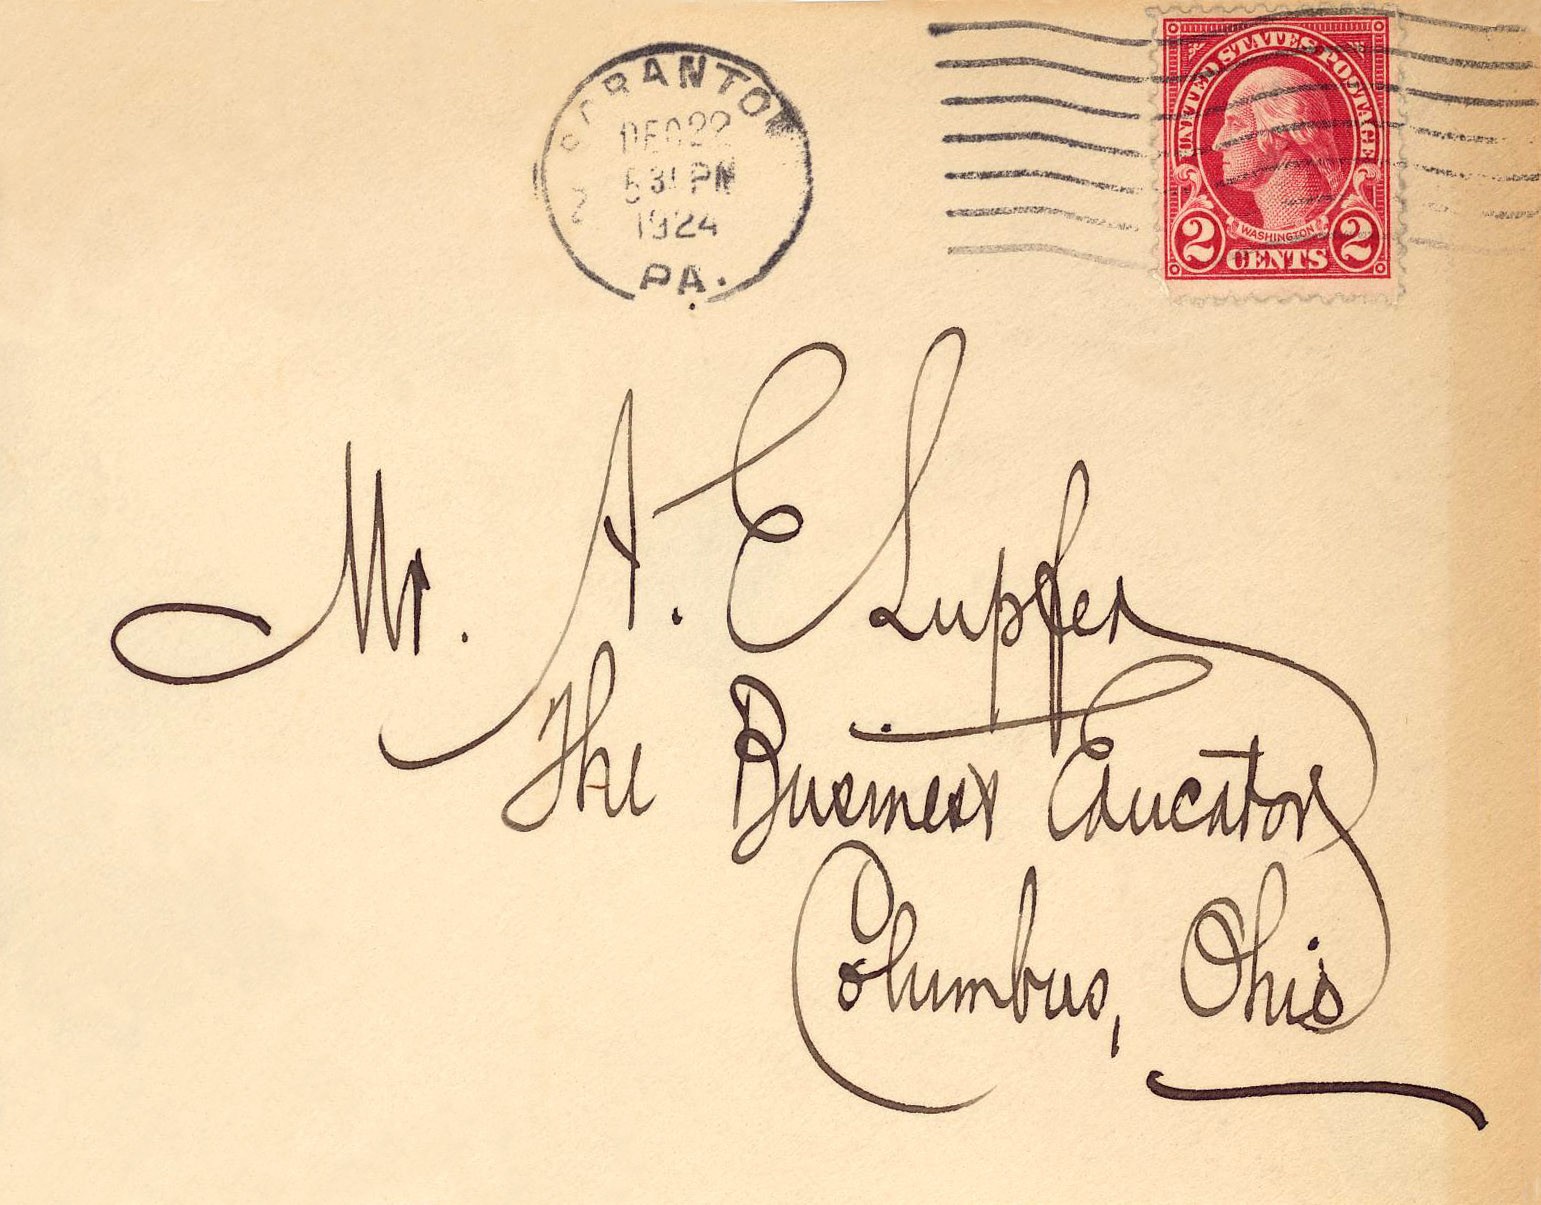 SCRANTON
DEC 22
530 PM
1924
PA.
UNITED STATES POSTAGE
WASHINGTON
2 CENTS 2
Mr. A. E. Lupfer
The Business Educator
Columbus, Ohio